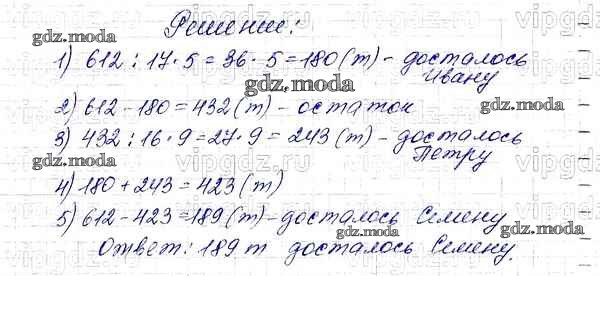 Решение:
1) 612 : 17 · 5 = 36 · 5 = 180 (т) - досталось
Ивану
2) 612 - 180 = 432 (т) - остаток
3) 432 : 16 · 9 = 27 · 9 = 243 (т) - досталось
Петру
4) 180 + 243 = 423 (т)
5) 612 - 423 = 189 (т) - досталось Семену
Ответ: 189 т досталось Семену.
gdz.moda
gdz.moda
gdz.moda
gdz.moda
gdz.moda
gdz.moda
gdz.moda
gdz.moda
vipgdz.ru
vipgdz.ru
vipgdz.ru